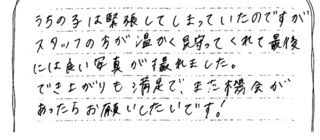 うちの子は緊張してしまっていたのですが
スタッフの方が温かく見守ってくれて最後
には良い写真が撮れました。
でき上がりも満足でまた機会が
あったらお願いしたいです!